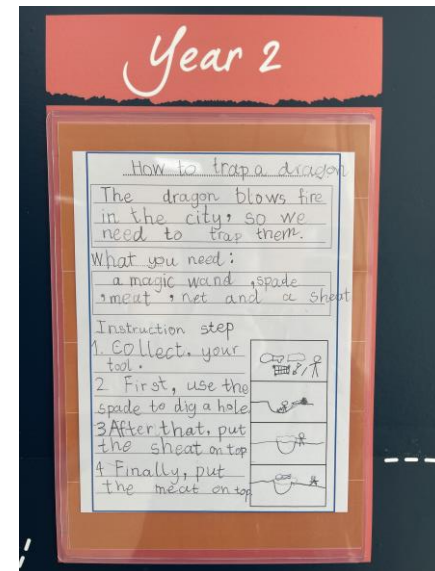 Year 2
How to trap a dragon
The dragon blows fire
in the city, so we
need to trap them.
What you need:
a magic wand ,spade
,meat ,net and a sheat
Instruction step
1. Collect. your
tool.
2 First, use the
spade to dig a hole
3 After that. put
the sheat on top
4 Finally, put
the meat on top